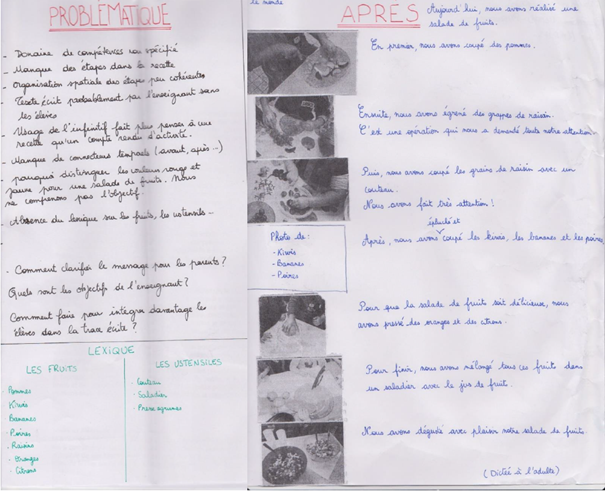 PROBLÉMATIQUE
- Domaine de compétences non spécifié
- Manque des étapes dans la recette
- Organisation spatiale des étapes peu cohérentes
- Texte écrit probablement par l'enseignant sans
les élèves
- Usage de l'infinitif fait plus penser à une
recette qu'un compte rendu d'activité.
- Manque de connecteurs temporels (avant, après...)
- pourquoi distinguer les couleurs rouge et
jaune pour une salade de fruits. Nous
ne comprenons pas l'objectif.
- Absence du lexique sur les fruits, les ustensiles...
- Comment clarifier le message pour les parents ?
Quels sont les objectifs de l'enseignant ?
Comment faire pour intégrer davantage les
élèves dans la trace écrite ?
LEXIQUE
LES FRUITS
Pommes
Kiwis
Bananes
Poires
- Raisins
- Oranges
- Citrons
LES USTENSILES
- Couteau
- Saladier
- Presse agrumes
le monde
APRÈS
Aujourd'hui, nous avons réalisé une
salade de fruits.
En premier, nous avons coupé des pommes.
Ensuite, nous avons égrené des grappes de raisin.
C'est une opération qui nous a demandé toute notre attention.
Puis, nous avons coupé les grains de raisin avec un
couteau.
Nous avons fait très attention !
Photos de :
- Kiwis
- Bananes
- Poires
épluché et
Après, nous avons coupé les kiwis, les bananes et les poires
Pour que la salade de fruits soit délicieuse, nous
avons pressé des oranges et des citrons.
Pour finir, nous avons mélangé tous ces fruits dans
un saladier avec le jus de fruit.
Nous avons dégusté avec plaisir notre salade de fruits
(Dictée à l'adulte)